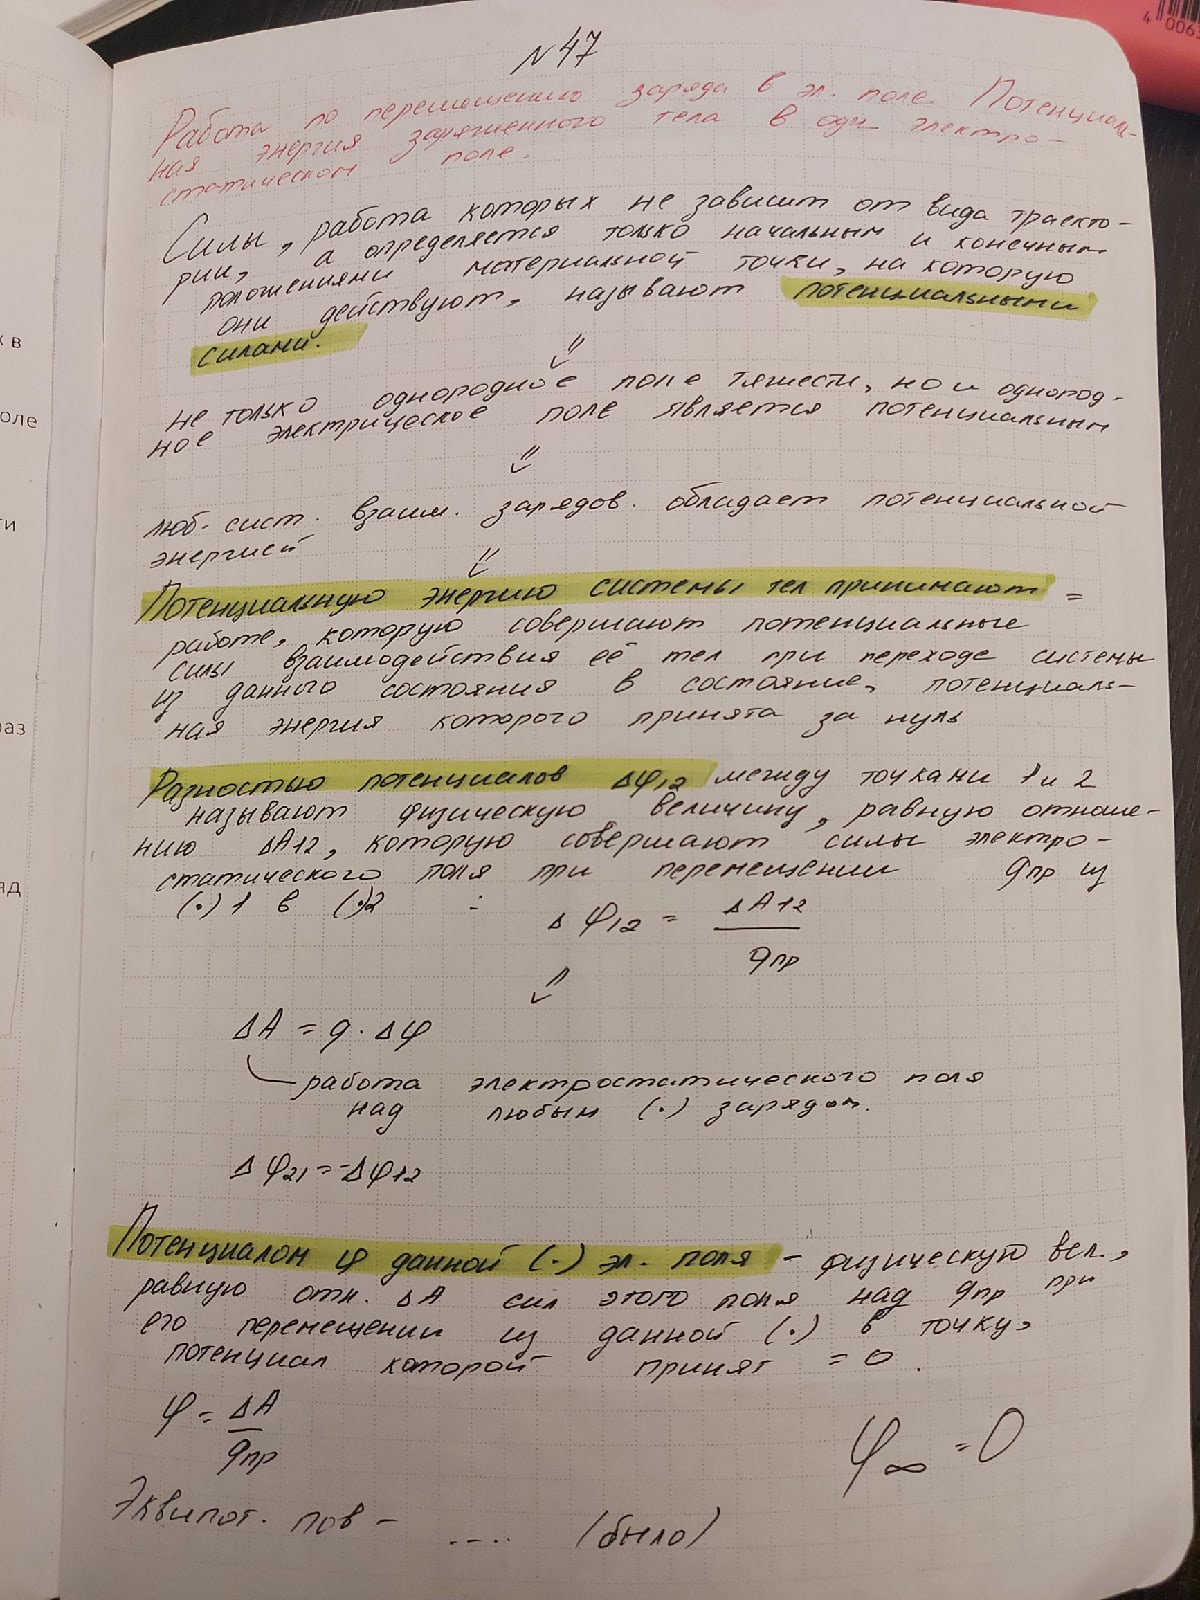 N 47
Работа по перемещению заряда в эл. поле Потенциаль-
ная энергия заряженного тела в одн электро-
статическом поле.
Силы, работа которых не зависит от вида траекто-
рии, а определяется только начальным и конечным
положениями материальной точки, на которую
они действуют, называют потенциальными
силами.
⇓
не только однородное поле тяжести, но и однород-
ное электрическое поле является потенциальным
⇓
люб. сист. взаим. зарядов. обладает потенциальной
энергией
⇓
Потенциальную энергию системы тел принимают =
работе, которую совершают потенциальные
силы взаимодействия её тел при переходе системы
из данного состояния в состояние, потенциаль-
ная энергия которого принята за нуль
Разностью потенциалов Δφ12 между точками 1 и 2
называют физическую величину, равную отноше-
нию ΔA12, которую совершают силы электро-
статического поля при перемещении qпр из
(·) 1 в (·)2 :
Δφ12 = ΔA12 / qпр
⇓
ΔA = q · Δφ
работа электростатического поля
над любым (·) зарядом.
Δφ21 = -Δφ12
Потенциалом φ данной (·) эл. поля - физическую вел.,
равную отн. ΔA сил этого поля над qпр при
его перемещении из данной (·) в точку,
потенциал которой принят = 0.
φ = ΔA / qпр
φ∞ = 0
Эквипот. пов - .... (было)
4 006
к в
оле
ти
раз
яд